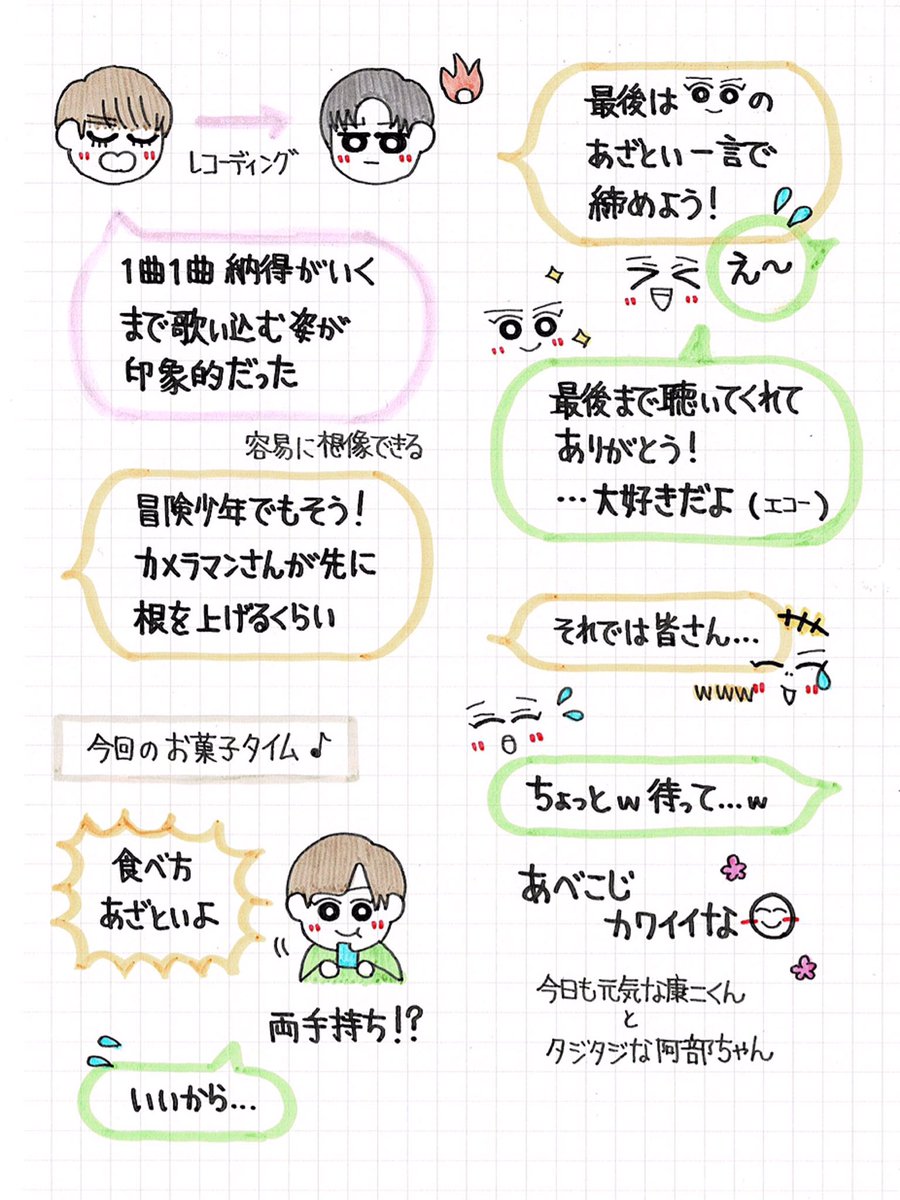 レコーディング
1曲1曲 納得がいく
まで歌い込む姿が
印象的だった
容易に想像できる
冒険少年でもそう！
カメラマンさんが先に
根を上げるくらい
今回のお菓子タイム♪
食べ方
あざといよ
両手持ち!?
いいから…
最後は の
あざとい一言で
締めよう！
え〜
最後まで聴いてくれて
ありがとう！
…大好きだよ（エコー）
それでは皆さん…
www
ちょっとw待って…w
あべこじ
カワイイな
今日も元気な康二くん
と
タジタジな阿部ちゃん